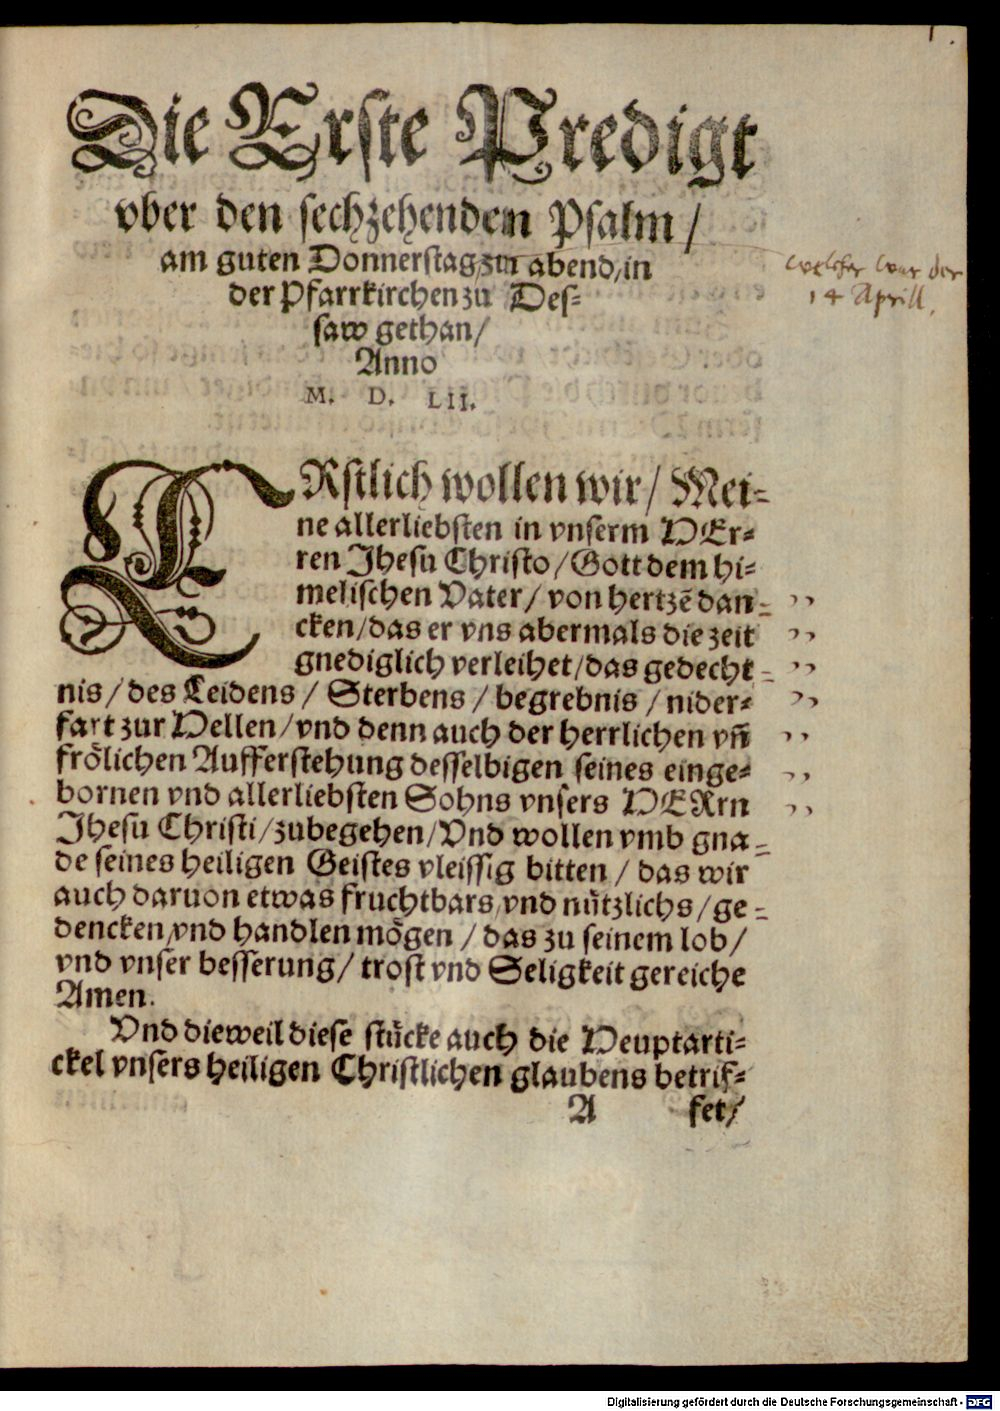 1.
Die Erste Predigt
vber den sechzehenden Psalm /
am guten Donnerstag / zu abend / in
der Pfarrkirchen zu Des=
saw gethan /
Anno
M. D. LII.
welcher war der
14 Aprill.
ERstlich wollen wir / Mei=
ne allerliebsten in vnserm HEr=
ren Jhesu Christo / Gott dem hi=
melischen Vater / von hertzẽ dan=
cken / das er vns abermals die zeit
gnediglich verleihet / das gedecht=
nis / des Leidens / Sterbens / begrebnis / nider=
fart zur Hellen / vnd denn auch der herrlichen vñ
frölichen Aufferstehung desselbigen seines einge=
bornen vnd allerliebsten Sohns vnsers HERrn
Jhesu Christi / zubegehen / Vnd wollen vmb gna=
de seines heiligen Geistes vleissig bitten / das wir
auch daruon etwas fruchtbars / vnd nützlichs / ge=
dencken / vnd handlen mögen / das zu seinem lob /
vnd vnser besserung / trost vnd Seligkeit gereiche
Amen.
Vnd dieweil diese stücke auch die Heuptarti=
ckel vnsers heiligen Christlichen glaubens betrif=
A fet /
Digitalisierung gefördert durch die Deutsche Forschungsgemeinschaft - DFG